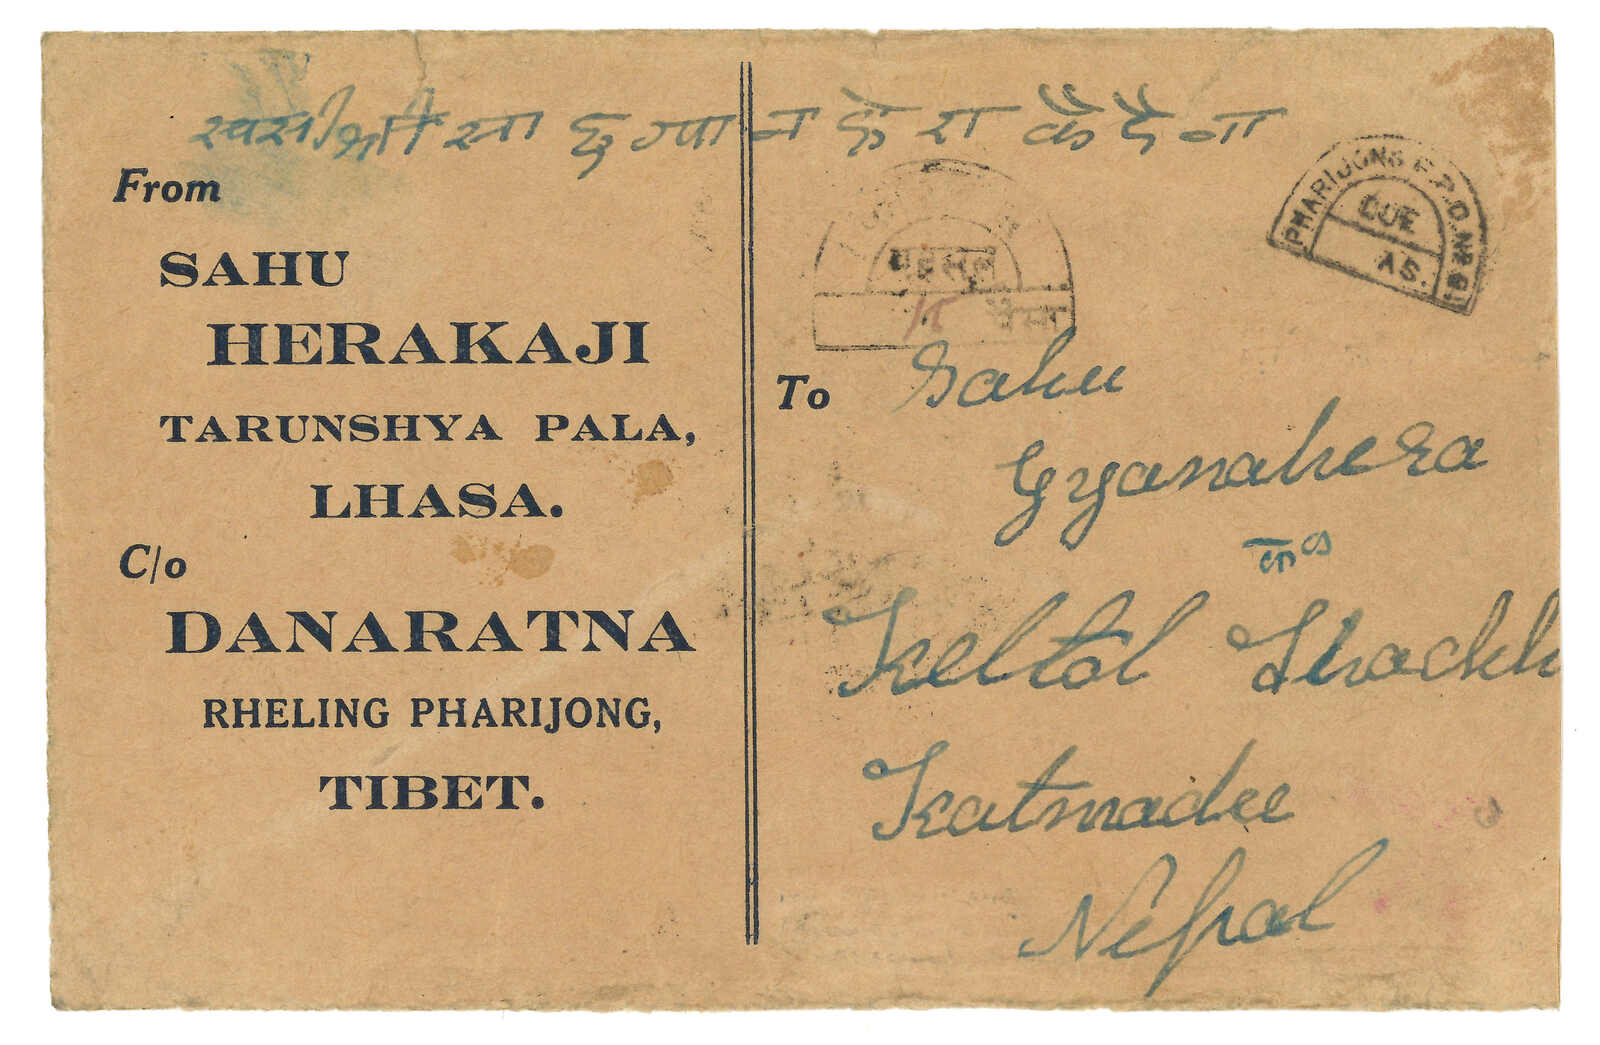 From
SAHU
HERAKAJI
TARUNSHYA PALA,
LHASA.
C/o
DANARATNA
RHELING PHARIJONG,
TIBET.
PHARIJONG F.P.O. Nº
DUE
AS.
महसूल
पैसा
To Sahu
Gyanahera
Keltol
Katmadee
Nepal